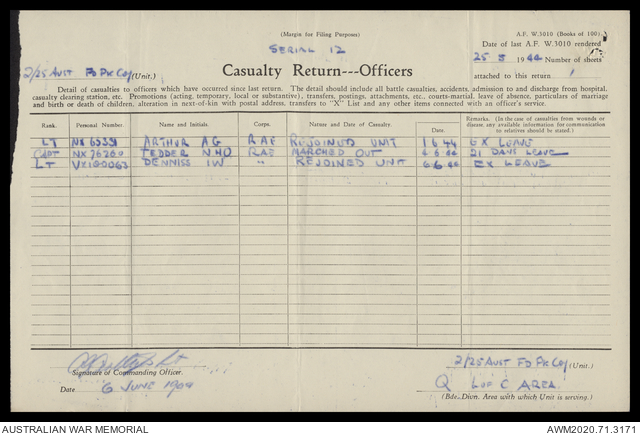 (Margin for Filing Purposes)
A.F. W.3010 (Books of 100)
SERIAL 12
Date of last A.F. W.3010 rendered
25 5 1944 Number of sheets
2/25 AUST FD PK COY (Unit.)
Casualty Return---Officers
attached to this return 1
Detail of casualties to officers which have occurred since last return. The detail should include all battle casualties, accidents, admission to and discharge from hospital,
casualty clearing station, etc. Promotions (acting, temporary, local or substantive), transfers, postings, attachments, etc., courts-martial, leave of absence, particulars of marriage
and birth or death of children, alteration in next-of-kin with postal address, transfers to "X" List and any other items connected with an officer's service.
Rank. Personal Number. Name and Initials. Corps. Nature and Date of Casualty. Date. Remarks. (In the case of casualties from wounds or
disease, any available information for communication
to relatives should be stated.)
LT ARTHUR A G RAE REJOINED UNIT 1 6 44 EX LEAVE
CAPT NX76260 TEDDER N H O RAE MARCHED OUT 4 6 44 21 DAYS LEAVE
LT VX100063 DENNISS I W " REJOINED UNIT 6 6 44 EX LEAVE
Signature of Commanding Officer.
2/25 AUST FD PK COY (Unit.)
Date 6 JUNE 1944
Q L OF C AREA
(Bde. Divn. Area with which Unit is serving.)
AUSTRALIAN WAR MEMORIAL
AWM2020.71.3171